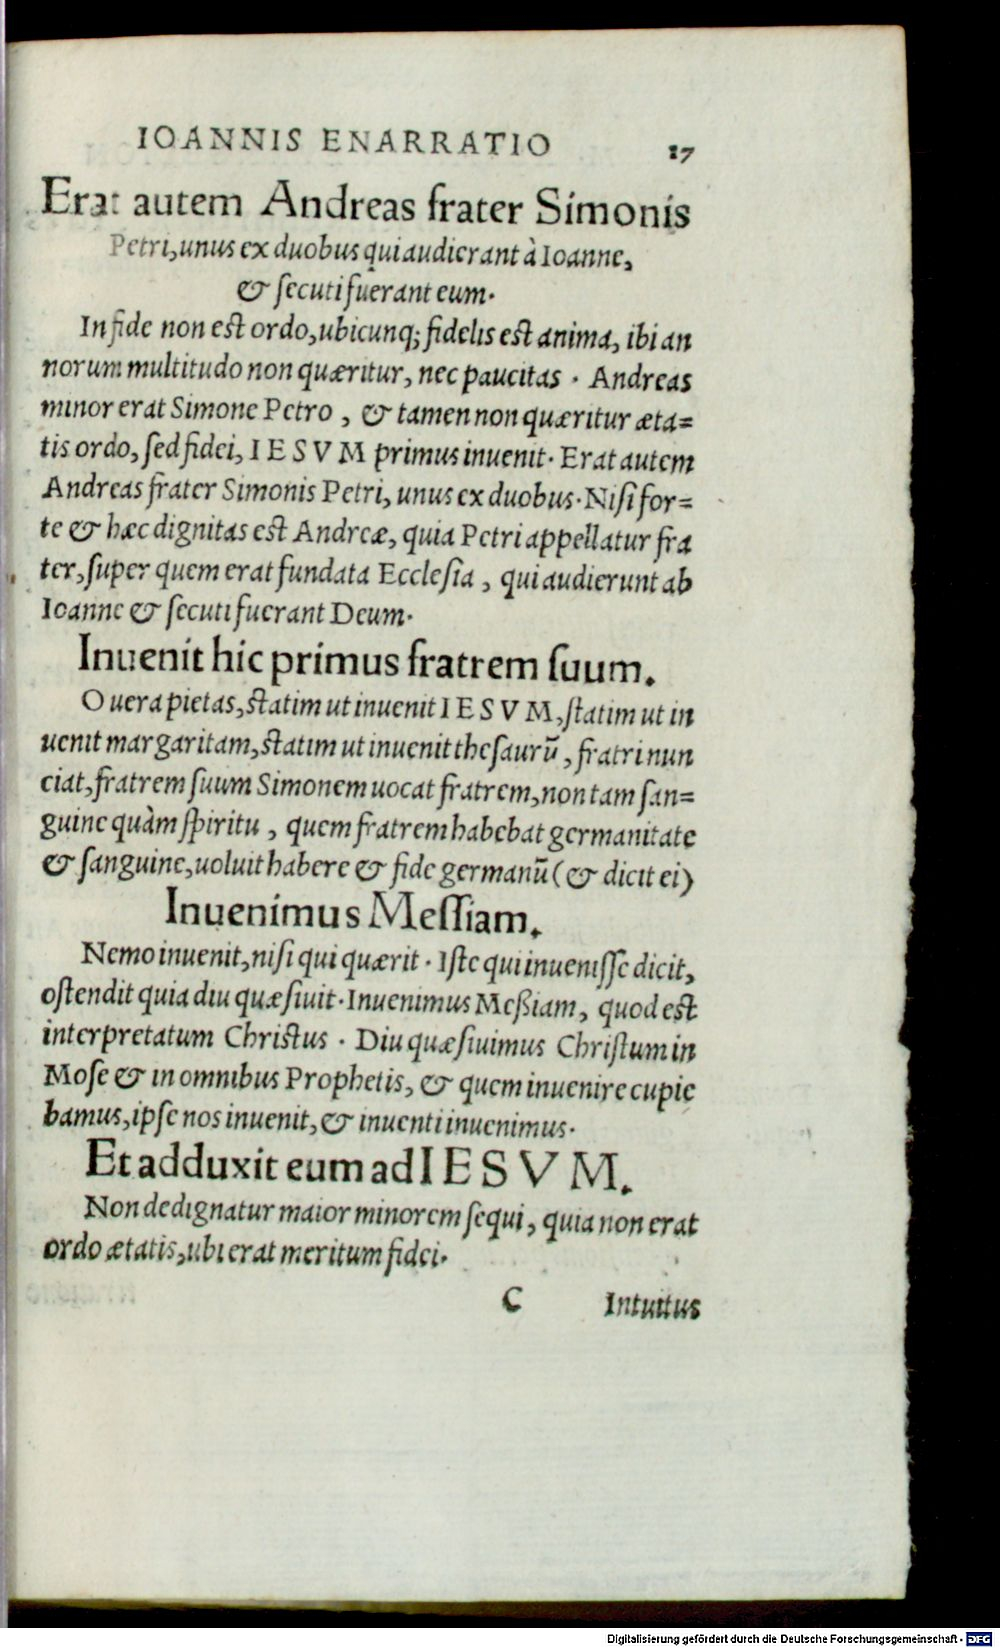 IOANNIS ENARRATIO 17
Erat autem Andreas frater Simonis
Petri, unus ex duobus qui audierant à Ioanne,
& ſecuti fuerant eum.
In fide non est ordo, ubicunq; fidelis est anima, ibi an
norum multitudo non quæritur, nec paucitas. Andreas
minor erat Simone Petro, & tamen non quæritur æta=
tis ordo, ſed fidei, IESVM primus inuenit. Erat autem
Andreas frater Simonis Petri, unus ex duobus. Niſi for=
te & hæc dignitas est Andreæ, quia Petri appellatur fra
ter, ſuper quem erat fundata Eccleſia, qui audierunt ab
Ioanne & ſecuti fuerant Deum.
Inuenit hic primus fratrem ſuum.
O uera pietas, statim ut inuenit IESVM, ſtatim ut in
uenit margaritam, statim ut inuenit theſaurū, fratri nun
ciat, fratrem ſuum Simonem uocat fratrem, non tam ſan=
guine quàm ſpiritu, quem fratrem habebat germanitate
& ſanguine, uoluit habere & fide germanū (& dicit ei)
Inuenimus Meſſiam.
Nemo inuenit, niſi qui quærit. Iſte qui inueniſſe dicit,
oſtendit quia diu quæſiuit. Inuenimus Meßiam, quod est
interpretatum Christus. Diu quæſiuimus Chriſtum in
Moſe & in omnibus Prophetis, & quem inuenire cupie
bamus, ipſe nos inuenit, & inuenti inuenimus.
Et adduxit eum ad IESVM.
Non dedignatur maior minorem ſequi, quia non erat
ordo ætatis, ubi erat meritum fidei.
C Intuitus
Digitalisierung gefördert durch die Deutsche Forschungsgemeinschaft - DFG